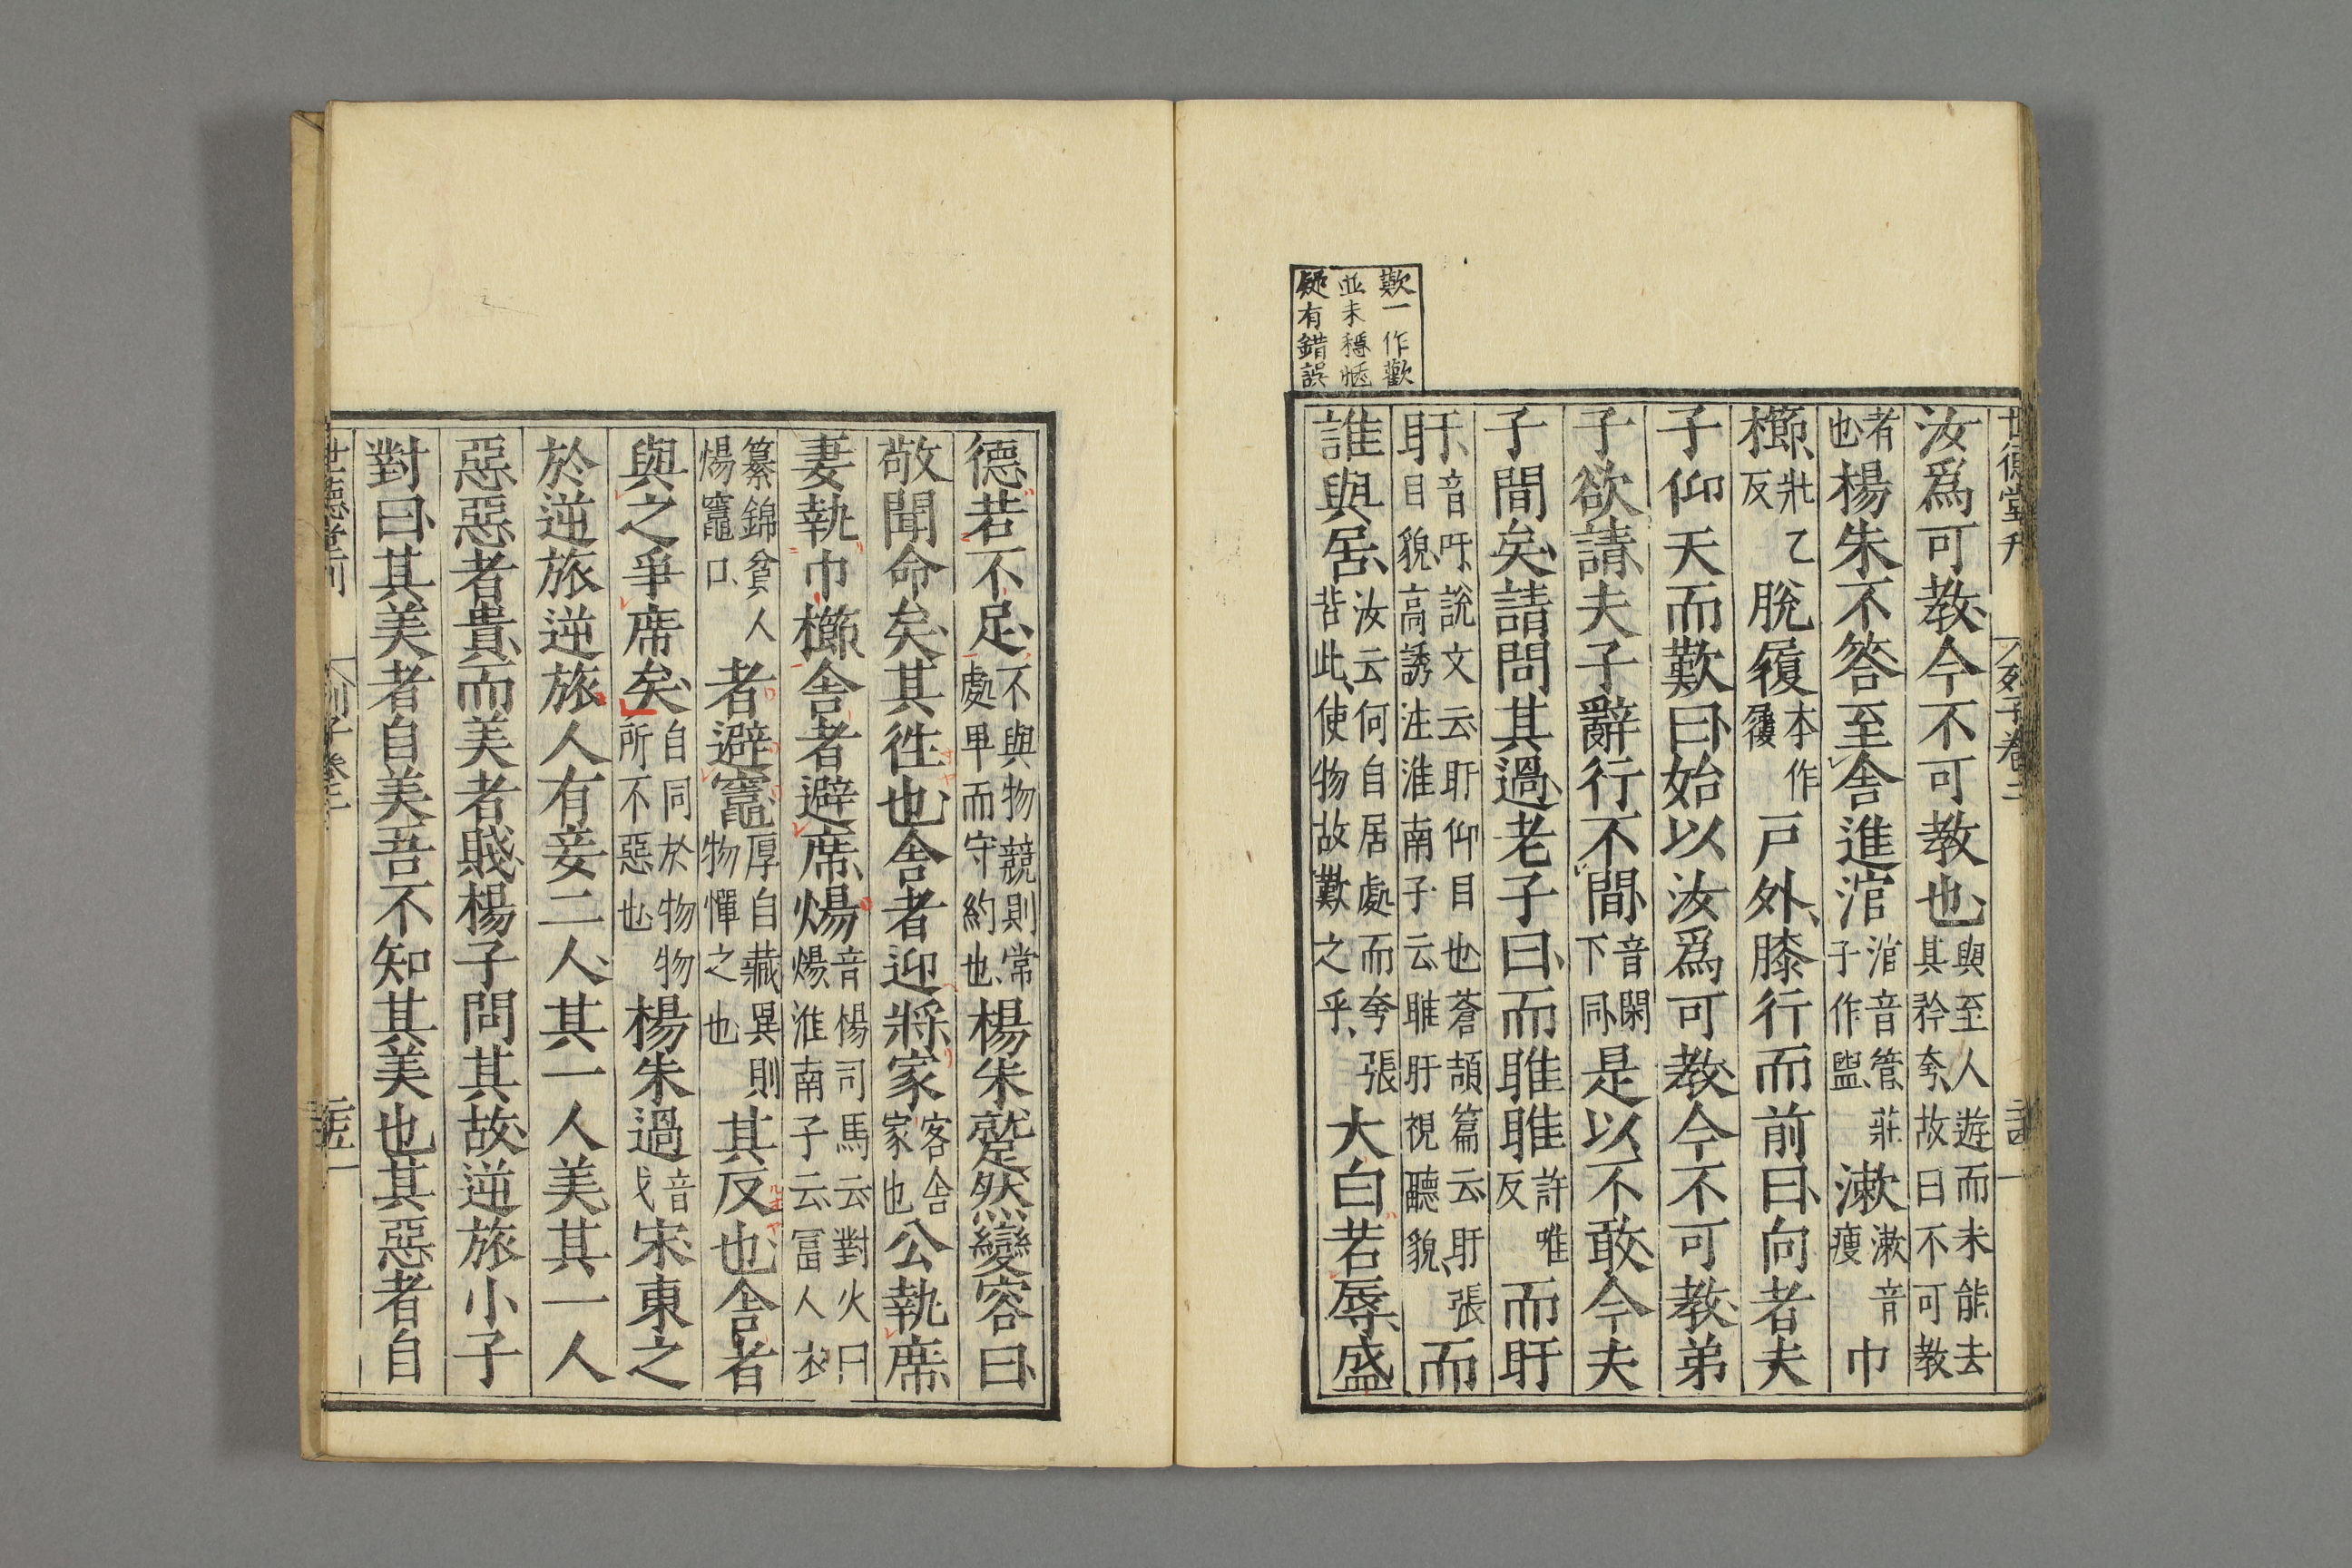 歎一作歡
並未穩愜
疑有錯誤
汝爲可教今不可教也與至人遊而未能去其矜夸故曰不可教
者也楊朱不答至舍進涫涫音管莊子作盥漱漱音瘦巾
櫛壯乙反脫履本作屨戶外膝行而前曰向者夫
子仰天而歎曰始以汝爲可教今不可教弟
子欲請夫子辭行不間音閑下同是以不敢今夫
子間矣請問其過老子曰而睢睢許唯反而盱
盱音吁說文云盱仰目也蒼頡篇云盱張目貌高誘注淮南子云睢盱視聽貌而
誰與居汝云何自居處而夸張背此使物故歎之乎大白若辱盛
德若不足不與物競則常處卑而守約也楊朱蹵然變容曰
敬聞命矣其徃也舍者迎將家客舍家也公執席
妻執巾櫛舍者避席煬音楊司馬云對火曰煬淮南子云冨人衣
纂錦貧人煬竈口者避竈厚自藏異則物憚之也其反也舍者
與之爭席矣自同於物物所不惡也楊朱過音戈宋東之
於逆旅逆旅人有妾二人其一人美其一人
惡惡者貴而美者賤楊子問其故逆旅小子
對曰其美者自美吾不知其美也其惡者自
世德堂刊 列子卷二